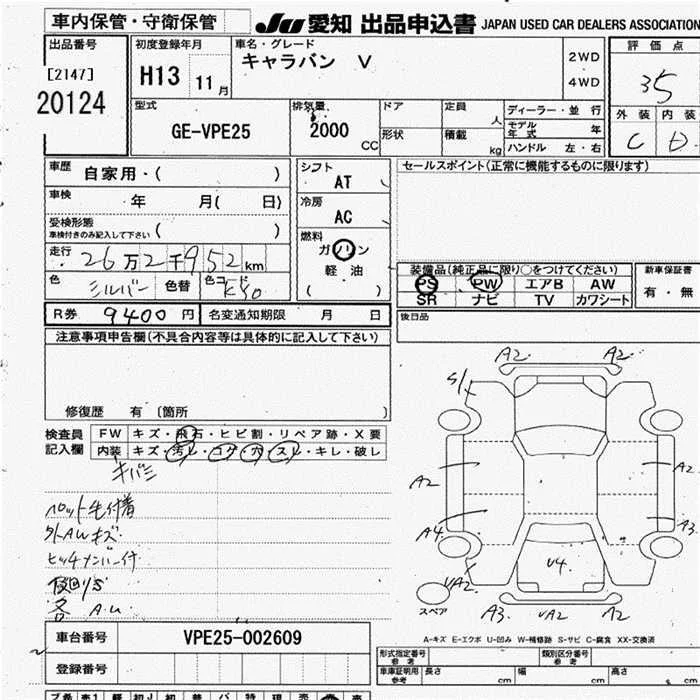 車内保管・守衛保管 JU 愛知 出品申込書 JAPAN USED CAR DEALERS ASSOCIATION
出品番号 初度登録年月 車名・グレード 評価点
[2147] H13 11月 キャラバン V 2WD
20124 4WD 35
型式 排気量 ドア 定員 人 ディーラー・並行 外装 内装
GE-VPE25 2000 CC 形状 積載 kg モデル年式 年 C D
ハンドル 左・右
車歴 自家用・( ) シフト AT セールスポイント(正常に機能するものに限ります)
車検 年 月( 日) 冷房 AC
受検形態
車検付きのみ記入して下さい ( )
燃料 ガソリン
走行 26万2千952km 軽油
色 シルバー 色替 色コード K50 ( )
装備品(純正品に限り○をつけてください) 新車保証書
PS PW エアB AW 有・無
SR ナビ TV カワシート
R券 9400円 名変通知期限 月 日
後日品
注意事項申告欄(不具合内容等は具体的に記入して下さい)
修復歴 有 〔箇所 〕
検査員 FW キズ・飛石・ヒビ割・リペア跡・X要
記入欄 内装 キズ・汚レ・コゲ・穴・スレ・キレ・破レ
キバミ
ペット毛付着
外AWキズ
ヒッチメンバー付
各 A.U
A2 A2
S/X
A2 A2
A4 A3
U4
UA2
スペア A3 UA2 A2
A-キズ E-エクボ U-凹み W-補修跡 S-サビ C-腐食 XX-交換済
車台番号 VPE25-002609
登録番号
形式指定番号 参考 類別区分番号 参考
車庫証明用 参考 長さ cm 幅 cm 高さ cm